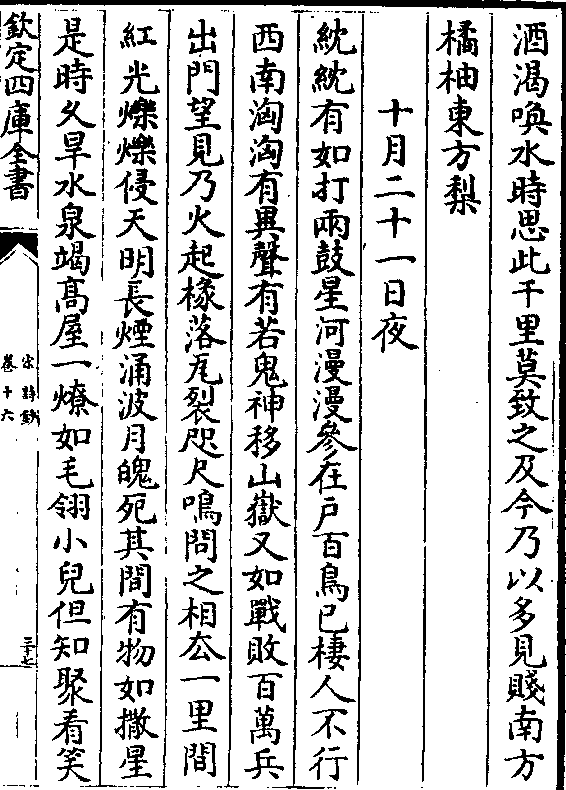 酒渴喚水時思此千里莫致之及今乃以多見賤南方
橘柚東方梨
十月二十一日夜
紞紞有如打兩鼓星河漫漫參在戶百鳥已棲人不行
西南洶洶有異聲有若鬼神移山嶽又如戰敗百萬兵
出門望見乃火起椽落瓦裂咫尺鳴問之相去一里間
紅光爍爍侵天明長煙涌波月魄死其間有物如撒星
是時久旱水泉竭髙屋一燎如毛翎小兒但知聚看笑
欽定四庫全書
宋詩鈔
卷十六
三十七